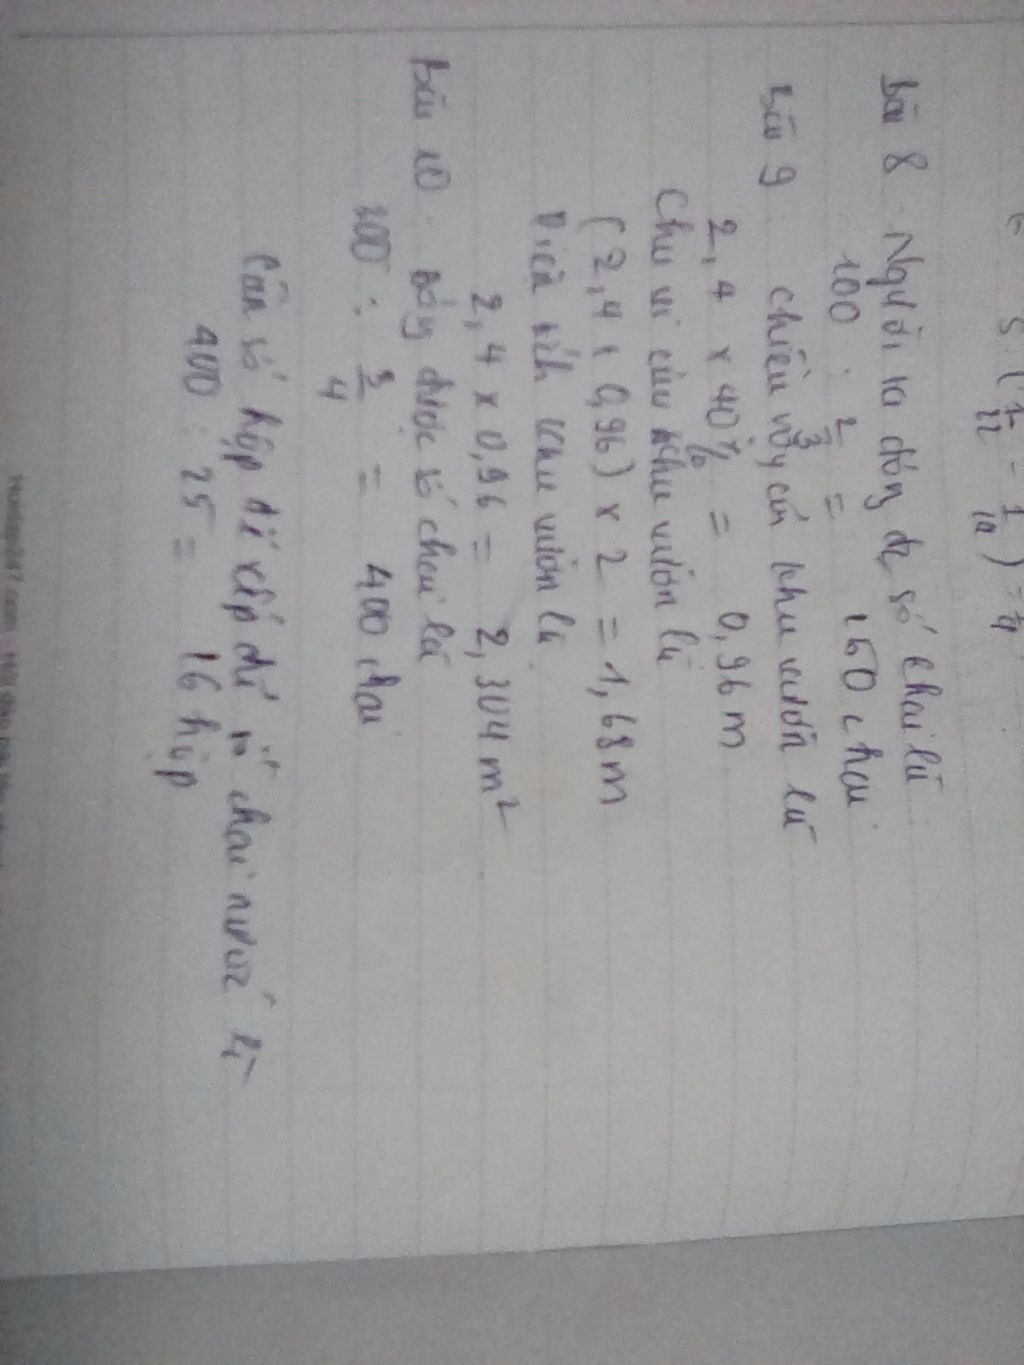 5 (1/11 - 1/12) = 1/4
Bài 8 Người ta đóng đc số chai là
100 : 2/3 = 150 chai
Bài 9 chiều rộng của khu vườn là
2,4 x 40% = 0,96 m
Chu vi của khu vườn là
(2,4 + 0,96) x 2 = 1,68 m
Diện tích khu vườn là
2,4 x 0,96 = 2,304 m²
Bài 10. đóng được số chai là
300 : 3/4 = 400 chai
Cần số hộp để xếp đủ số chai nước là
400 : 25 = 16 hộp